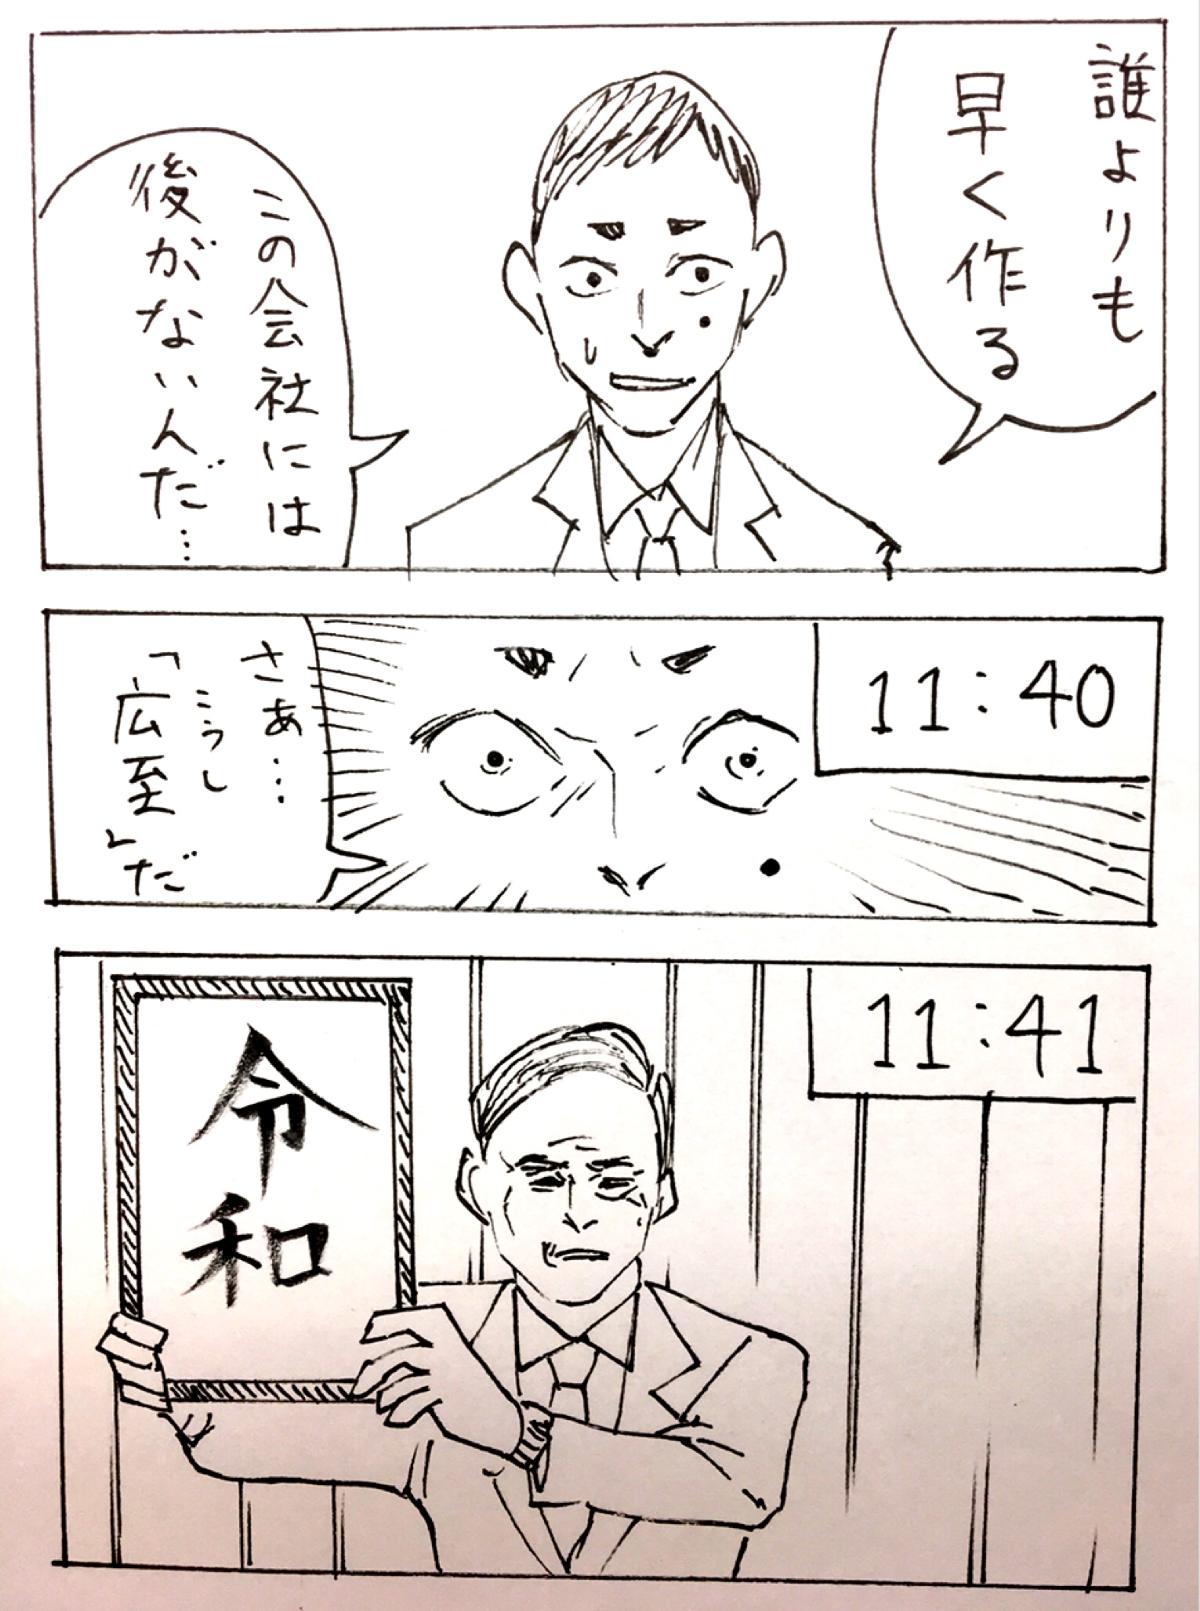 誰よりも
早く作る
この会社には
後がないんだ…
11:40
さぁ…
「広至」だ
こうし
11:41
令
和